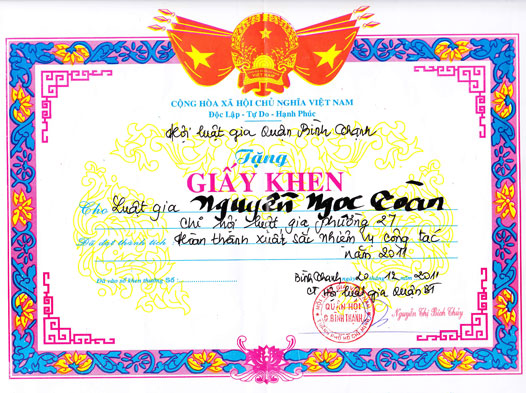 CỘNG HÒA XÃ HỘI CHỦ NGHĨA VIỆT NAM
Độc Lập - Tự Do - Hạnh Phúc
Hội luật gia Quận Bình Thạnh
Tặng
GIẤY KHEN
Cho Luật gia Nguyễn Ngọc Toàn
Chi hội luật gia phường 27
Đã đạt thành tích Hoàn thành xuất sắc nhiệm vụ công tác
năm 2011
Bình Thạnh, ngày 20 tháng 12 năm 2011
Đã vào sổ khen thưởng Số :
CT Hội luật gia Quận BT
QUẬN HỘI
Q BÌNH THẠNH
Nguyễn Thị Bích Thủy